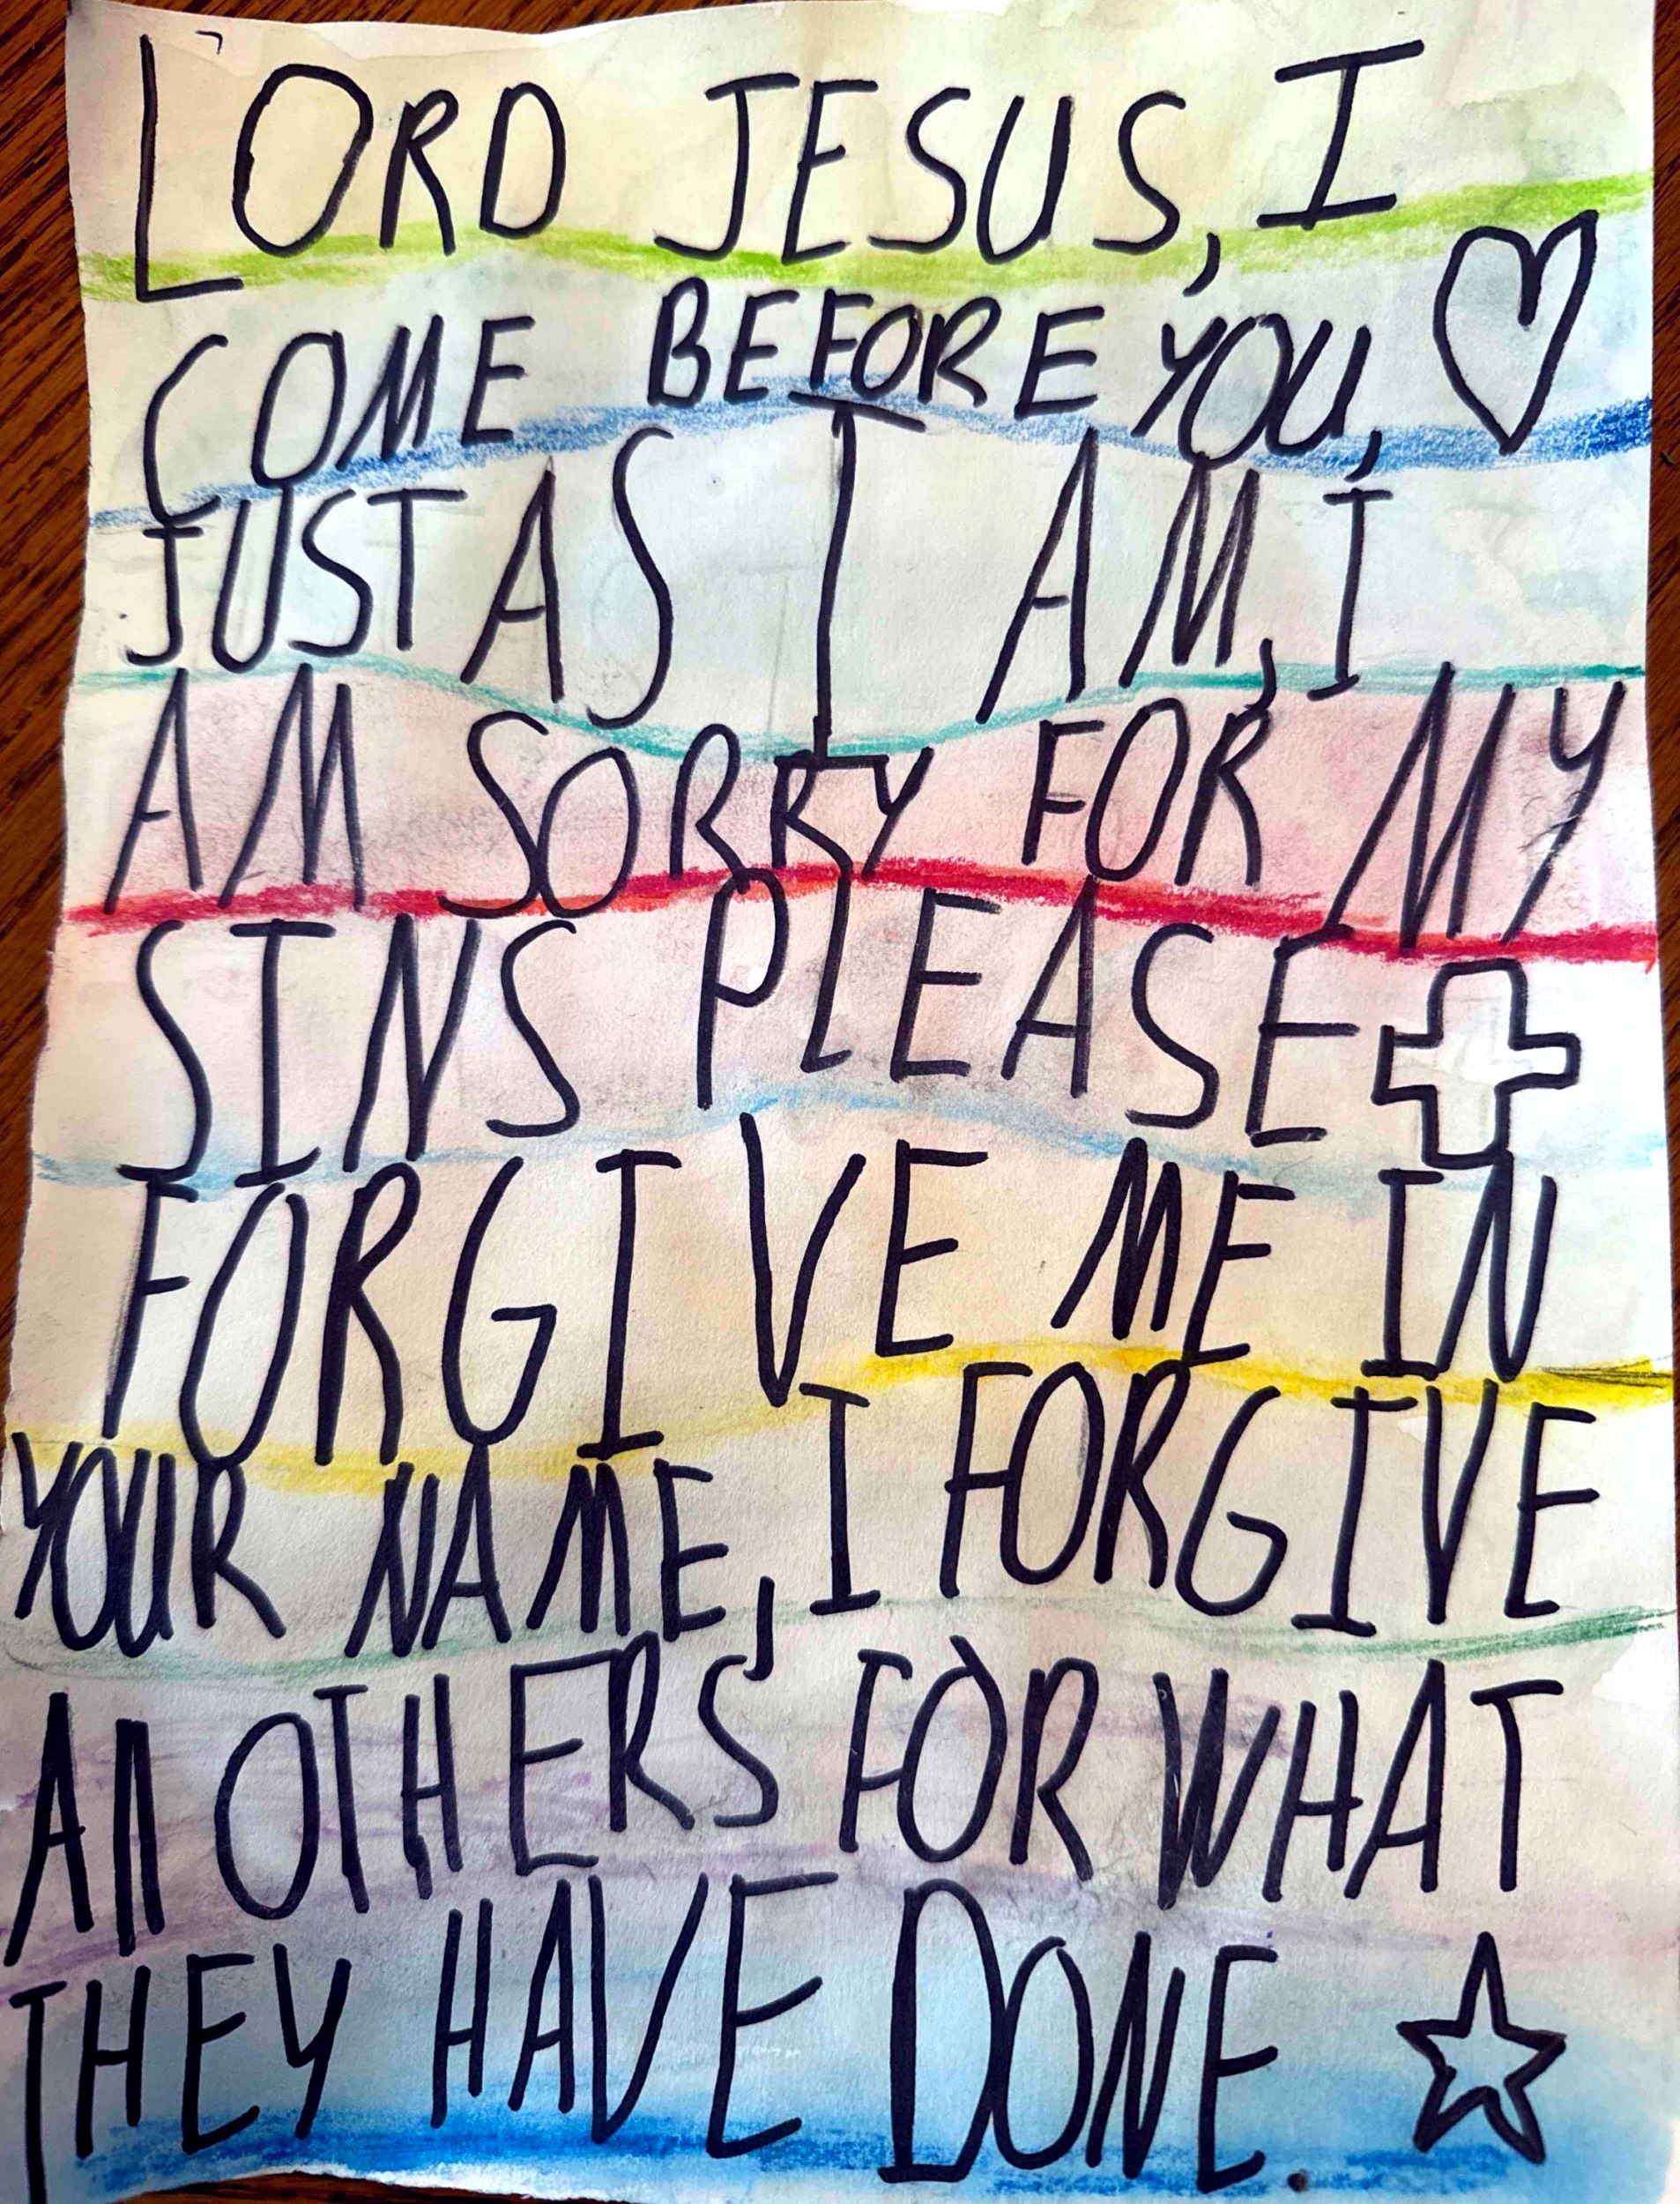 LORD JESUS, I
COME BEFORE YOU,
JUST AS I AM, I
AM SORRY FOR MY
SINS PLEASE
FORGIVE ME IN
YOUR NAME, I FORGIVE
All OTHERS FOR WHAT
THEY HAVE DONE.